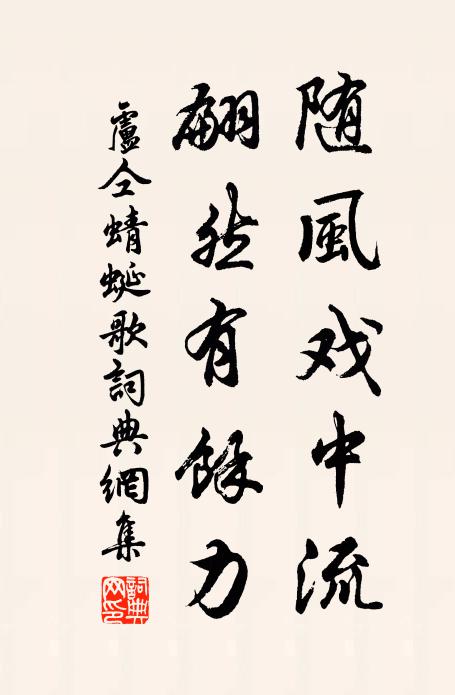 随風戏中流
翩然有餘力
盧仝蜻蜓歌詞典網集
詞典网印